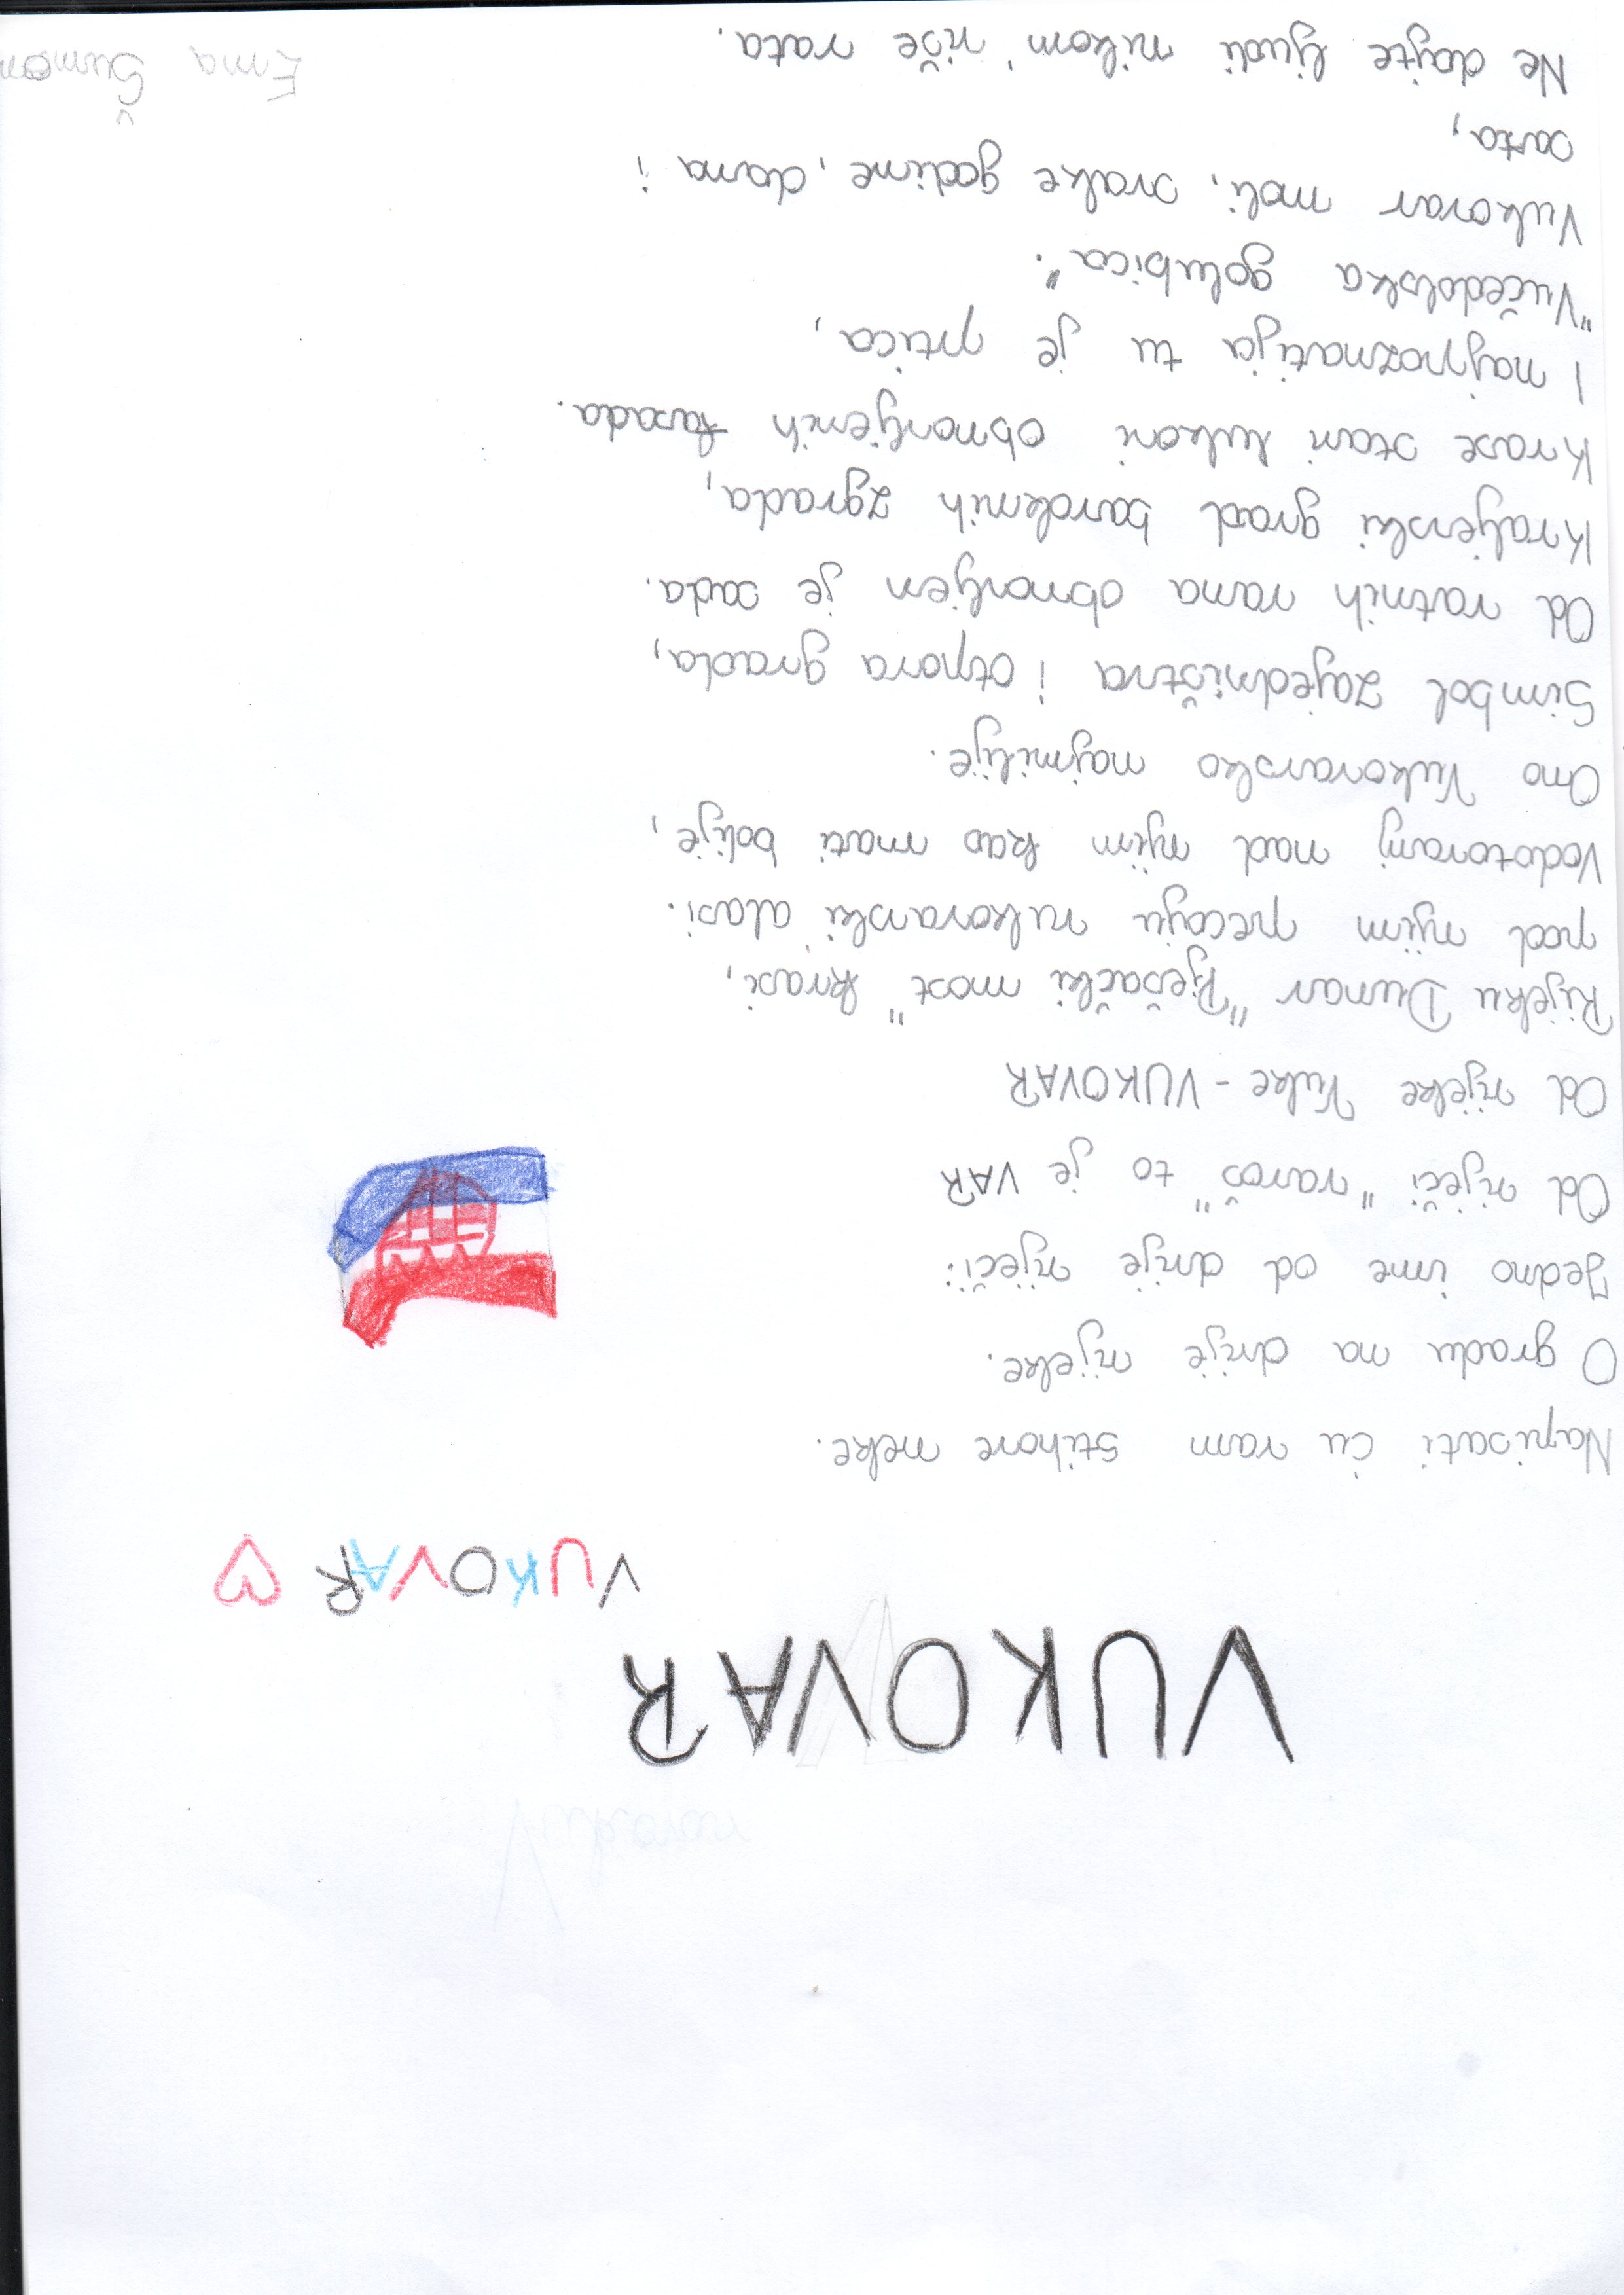 VUKOVAR
VUKOVAR
Napisati ću vam stihove meke.
O gradu na dvije rijeke.
Jedno ime od dvije riječi:
Od riječi "varoš" to je VAR
Od rijeke Vuke - VUKOVAR
Rijeku Dunav "Pješački most" krasi,
pod njim pecaju vukovarski alasi.
Vodotoranj nad njim kao mati bdije,
Ono Vukovarsko najmilije.
Simbol zajedništva i otpora grada,
Od ratnih rana obnovljen je sada.
Kraljevski grad baroknih zgrada,
Krase stari lukovi obnovljenih fasada.
I najpoznatija tu je ptica,
"Vučedolska golubica".
Vukovar moli, svake godine, dana i
sata,
Ne dajte ljudi nikom više rata.
Ema